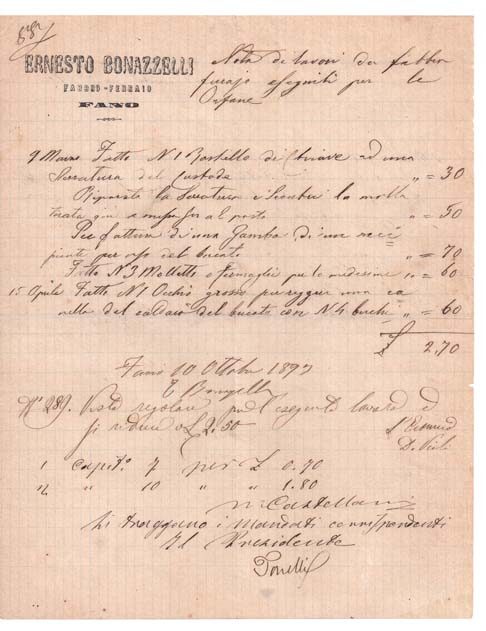 ERNESTO BONAZZELLI
FABBRO-FERRAIO
FANO
Nota di lavori da fabbro
ferrajo eseguiti per le
Orfane
9 Marzo Fatto N. 1 Bastello di Chiave ad una
Serratura del Custode " = 30
Riparata la Serratura e la molla
" = 50
Per fattura di una Gamba di un reci
piente per uso del bucato " = 70
Fatto N. 3 Mollette e fermagli per le medesime " = 60
15 Aprile Fatto N. 1 Occhio grosso per reggere una ca
nella del caldaio del bucato con N. 4 buchi " = 60
£ 2,70
Fano 10 Ottobre 1897
E Bonazzelli
N. 289. Visto regolare pel eseguito lavoro e
si riduce a £ 2.50
1 capit. 7 per £ 0.70
" " 10 " " 1.80
M. Castellani
Si traggano i Mandati corrispondenti
Il Presidente